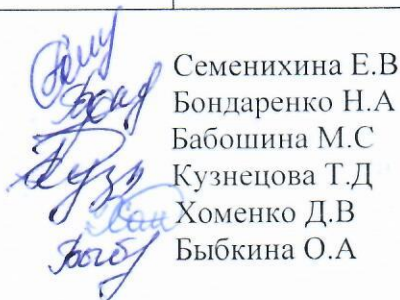 Семенихина Е.В
Бондаренко Н.А
Бабошина М.С
Кузнецова Т.Д
Хоменко Д.В
Быбкина О.А